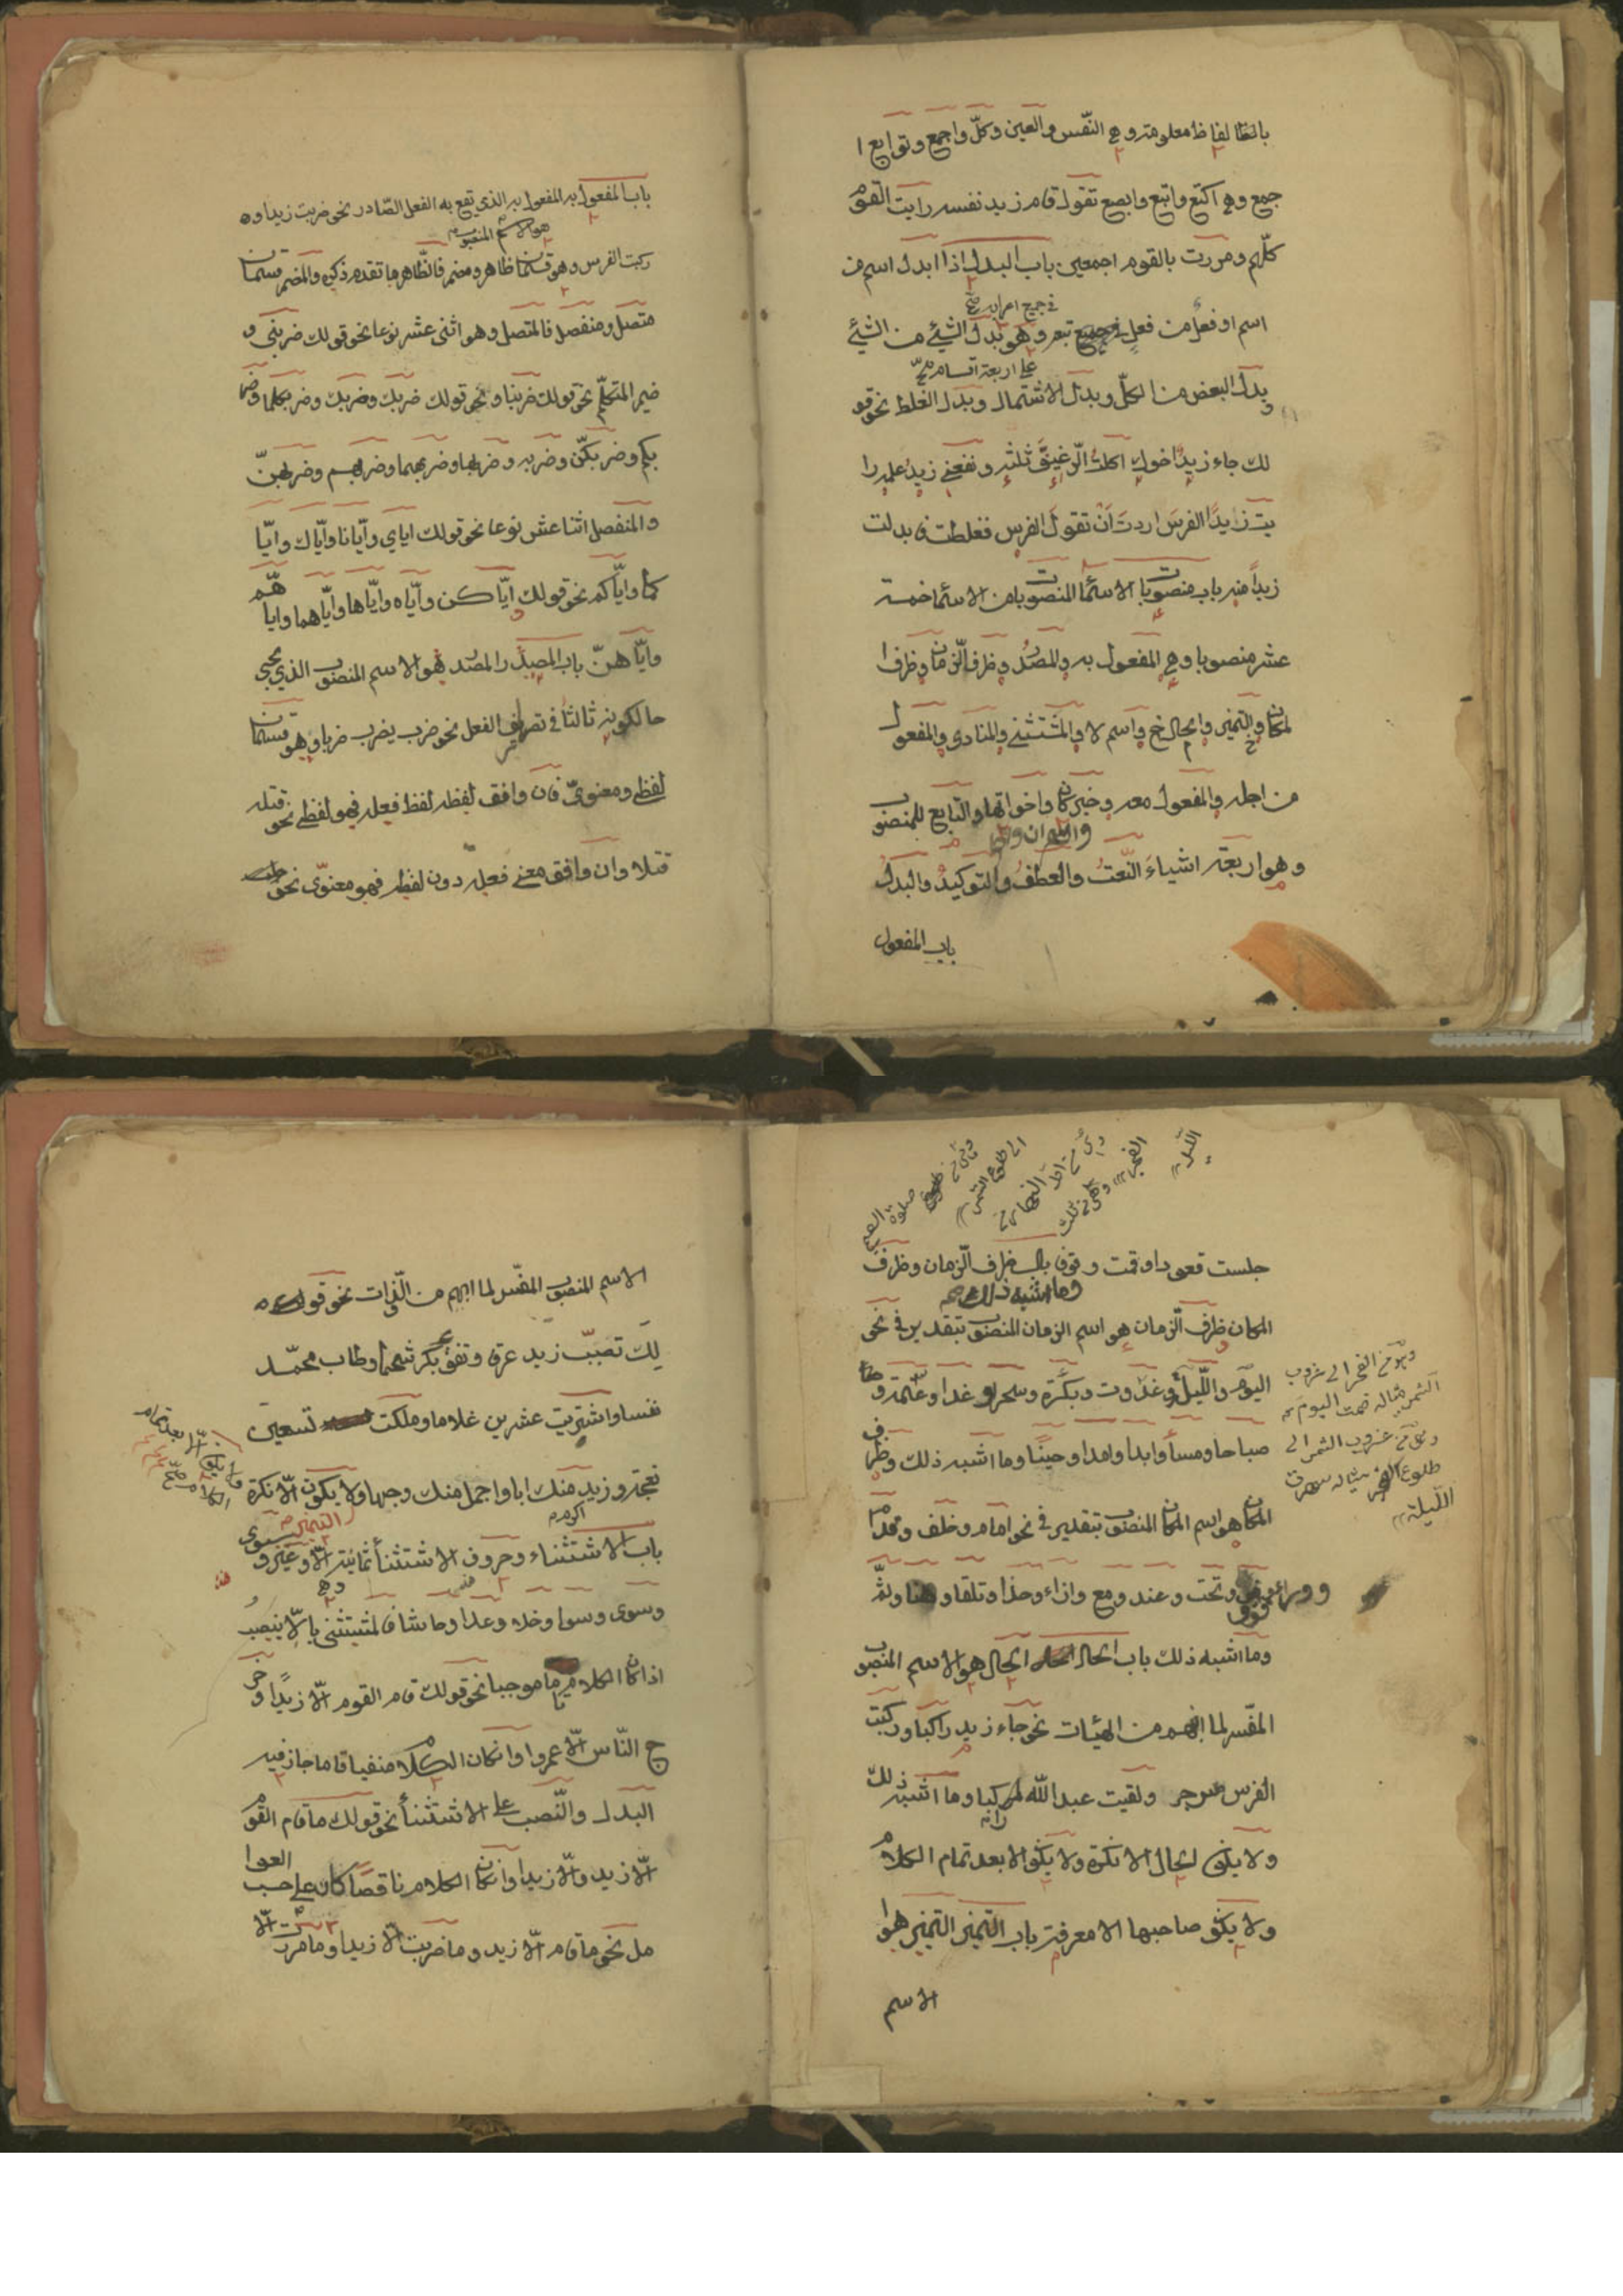 بالفاظ معلومة وهي النّفس والعين وكلّ واجمع وتوابع ا
جمع وهي اكتع واتبع وابصع تقول قام زيد نفسه رايت القوم
كلّهم ومررت بالقوم اجمعين باب البدل اذا ابدل اسم من
في جميع اعرابه صح
اسم او فعل من فعل تبعه وهو بدل الشيئ من الشيئ
على اربعة اقسام صح
و بدل البعض من الكلّ وبدل الاشتمال وبدل الغلط نحو قو
لك جاء زيد اخوك اكلت الرّغيف ثلثه ونفعني زيد علمه را
يت زايدًا الفرس اردت ان تقول الفرس فغلطت فابدلت
زيدًا منه باب منصوبات الاسمأ المنصوبات من الاسمأ خمسة
عشر منصوبا وهي المفعول به والمصدر وظرف الزّمان وظرف ا
لمكان والتميز والحال واسم لا والمشتثنى والمنادى والمفعول
من اجله والمفعول معه وخبر كان واخواتها والتّابع للمنصوب
واسم ان
وهو اربعة اشياء النّعت والعطف والتوكيد والبدل
باب المفعول
باب المفعول به المفعول به الذي تقع به الفعل الصّادر نحو ضربت زيدا و
هو الاسم المنصوب
ركبت الفرس وهو قسمان ظاهر ومضمر فالظّاهر ما تقدم ذكره والمضمر قسمان
متصل ومنفصل فالمتصل وهو اثنى عشر نوعا نحو قولك ضربني و
ضمير المتكلّم نحو قولك ضربنا ونحو قولك ضربك وضربك وضربكما وضر
بكم وضربكنّ وضربه وضربها وضربهما وضربهم وضربهنّ
والمنفصل اثنا عشر نوعا نحو قولك اياي وايّانا وايّاك وايّا
كما وايّاكم نحو قولك ايّاكن وايّاه وايّاها وايّاهما وايا هّم
وايّاهنّ باب المصدر المصدر هو الاسم المنصوب الذي يجيئ
حالكونه ثالثا في تصريف الفعل نحو ضرب يضرب ضربا وهو قسمان
لفظي ومعنويّ فان وافق لفظه لفظ فعله فهو لفظي نحو قتله
قتلا وان وافق معنى فعله دون لفظه فهو معنويّ نحو
جلست قعودا وقمت وقوفا باب ظرف الزّمان وظرف
وما اشبه ذلك صح
المكان ظرف الزّمان هو اسم الزمان المنصوب بتقدير في نحو
اليوم واللّيلة وغدوت وبكرة وسحرا وغدا وعتمة و
صباحا ومسأ وابدا وامدا وحينًا وما اشبه ذلك وظرف
المكان هو اسم المكان المنصوب بتقدير في نحو امام وخلف وقدام
و وراء وفوق وتحت وعند ومع وازاء وحذا وتلقا وهنا وثمّ
وما اشبه ذلك باب الحال الحال هو الاسم المنصوب
المفّسر لما انبهم من الهيئات نحو جاء زيد راكبا وركبت
الفرس مسرجا ولقيت عبد اللّه راكبا وما اشبه ذلك
ولا يكون الحال الا نكرة ولا يكون الا بعد تمام الكلام
ولا يكون صاحبها الا معرفة باب التميز التميز هوا
الاسم
وهو من الفجر الى غروب
الشمس مثاله صمت اليوم
وهو من غروب الشمس الى
طلوع الفجر مثاله سهرت
اللّيلة
الاسم المنصوب المفّسر لما انبهم من الّذات نحو قو
لك تصبّب زيد عرقا وتفقأ بكر شحما وطاب محمّد
نفسا واشتريت عشرين غلاما وملكت تسعين
نعجة وزيد منك ابا واجمل منك وجها ولا يكون الّا نكرة
اكرم
ولا يكون الّا بعد تمام الكلام صح
باب الاشتثناء وحروف الاشتثنأ ثمانية الّا وغير و
وهي
وسوى وسوا وخلا وعدا وحاشا فالمشتثنى بالّا ينصب
اذا كان الكلام تاما موجبا نحو قولك قام القوم الّا زيدًا وخر
ج النّاس الّا عمروا وانكان الكلام منفيا تاما جاز فيه
البدل والنّصب على الاشتثنأ نحو قولك ما قام القوم
الّا زيد والّا زيدا وانكان الكلام ناقصا كان على حسب العوا
مل نحو ما قام الّا زيد وما ضربت الّا زيدا وما مررت الّا